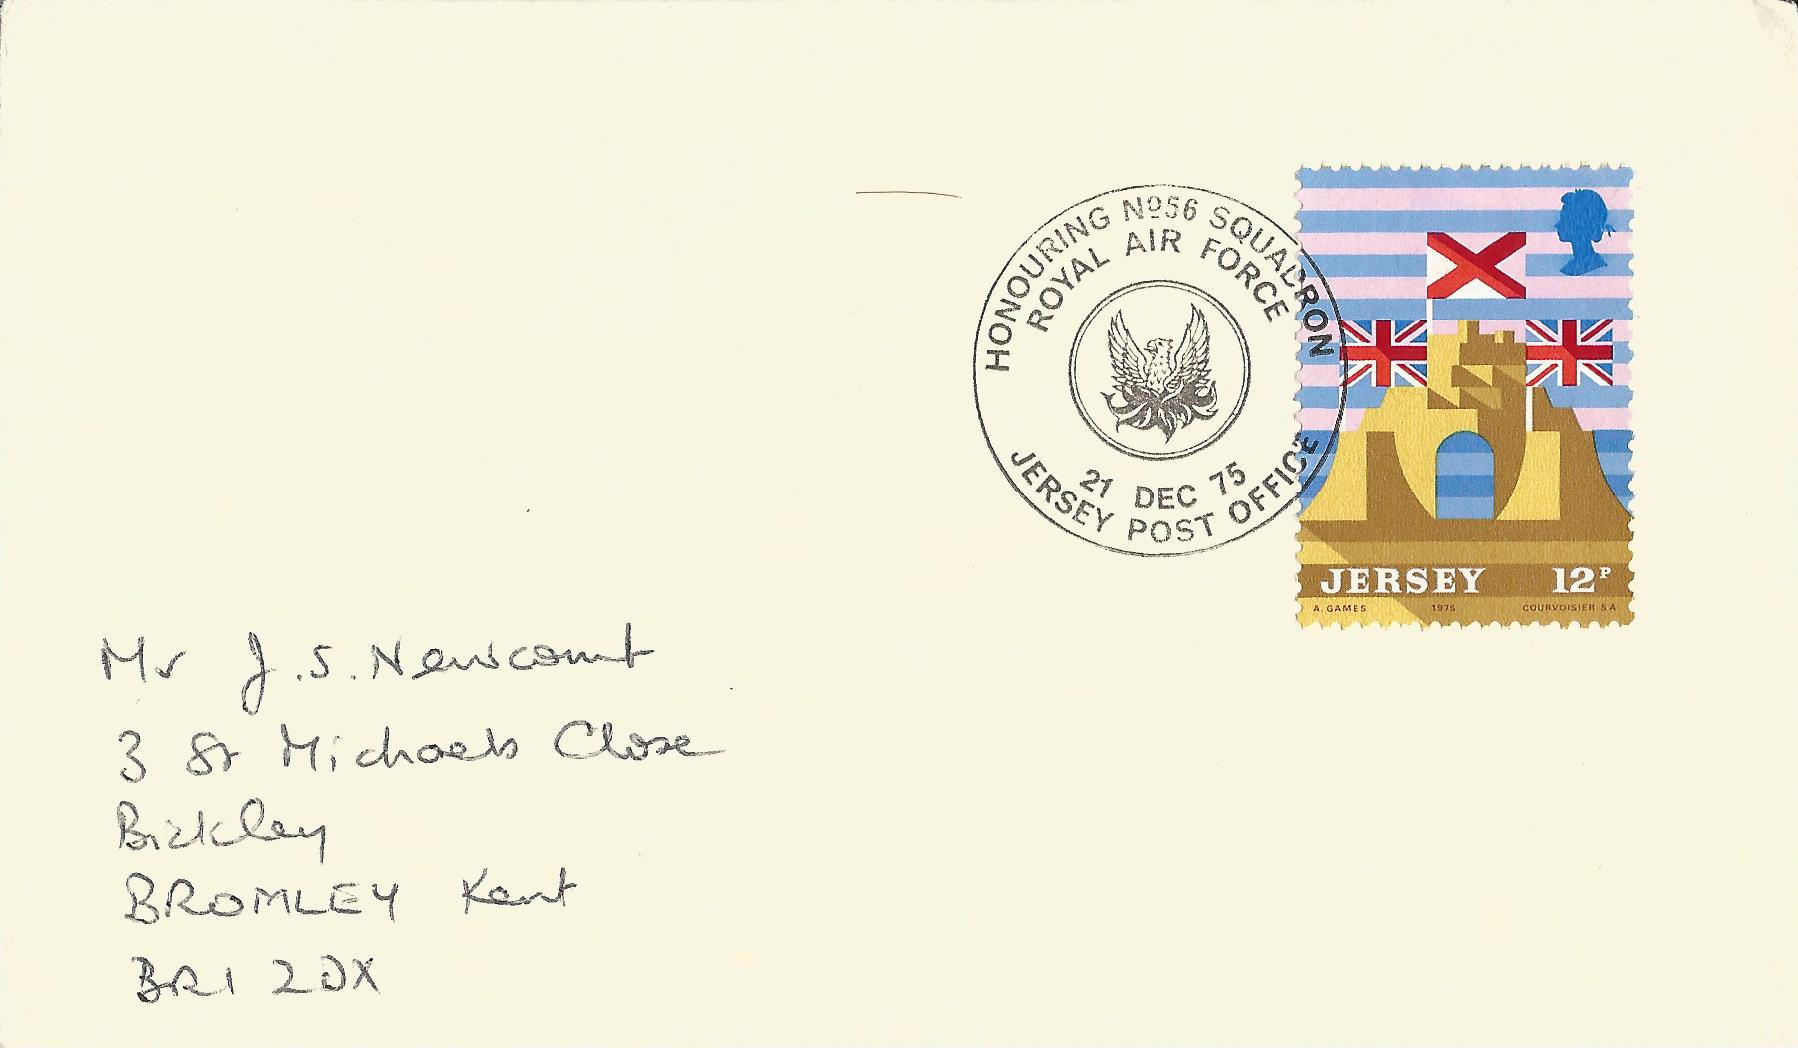 HONOURING Nº56 SQUADRON
ROYAL AIR FORCE
21 DEC 75
JERSEY POST OFFICE
JERSEY 12P
A. GAMES 1975 COURVOISIER S A
Mr J.S. Newcomt
3 St Michaels Close
Bickley
BROMLEY Kent
BR1 2DX